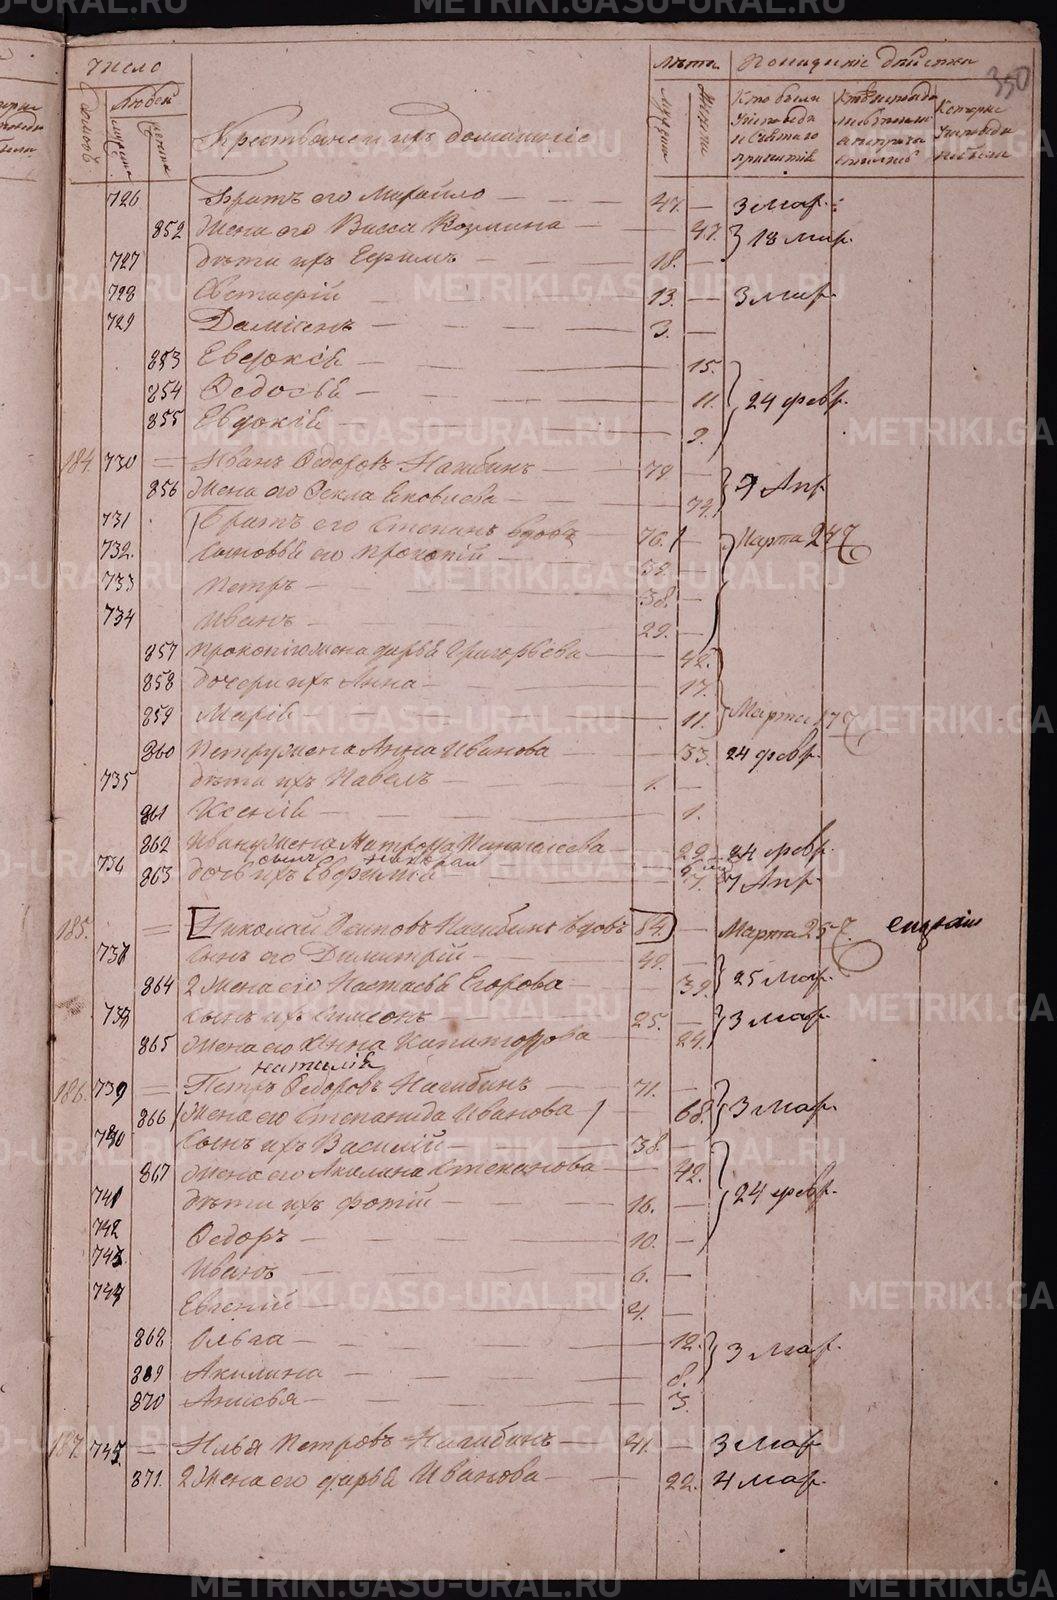 Число
Лѣта
Показаніе дѣйства
350
домовъ
Людей
мужеска
женска
Крестьяне и ихъ домашніе
мужска
женска
Кто были у исповѣди и Святаго причастія
Которые у исповѣди не были
726 Братъ его Михайло — 47. — 3 мар.
852 Жена его Васса Козмина — 47. 18 мар.
727 дѣти ихъ Ефимъ — 18. —
728 Евстафій — 13. — 3 мар.
729 Даміанъ — 3. —
853 Евдокія — 15.
854 Ѳедосья — 11. 24 февр.
855 Евдокія — 9.
184. 730 = Иванъ Ѳедоровъ Нагибинъ — 79 —
856 Жена его Ѳекла Яковлева — 72. 9 Апр
731 Братъ его Степанъ вдовъ — 76. — Марта 24
732. сыновья его Прокопій — 52. —
733 Петръ — 38. —
734 Иванъ — 29. —
857 Прокопію жена Дарья Григорьева — 42.
858 дочери ихъ Анна — 17.
859 Марія — 11. Марта 17
860 Петру жена Анна Иванова — 33. 24 февр.
735 дѣти ихъ Павелъ — 1. —
861 Ксенія — 1.
862 Ивану жена Матрона — 29. 24 февр.
сынъ
736 863 дочь ихъ Евфимія — 7. 7 Апр.
185. = Николай Осиповъ Нагибинъ вдовъ 84 — Марта 25
737 сынъ его Димитрій — 48. —
864 2 жена его Настасья Егорова — 39. 25 мар.
738 сынъ ихъ Симеонъ — 25. — 3 мар.
865 Жена его Анна — 24.
наталія
186. 739 = Петръ Ѳедоровъ Нагибинъ — 71. —
866 Жена его Степанида Иванова — 68. 3 мар.
740 сынъ ихъ Василій — 38. —
867 Жена его Акилина Степанова — 42.
741 дѣти ихъ Фотій — 16. — 24 февр.
742 Ѳедоръ — 10. —
743 Иванъ — 6. —
744 Евгеній — 4. —
868 Ольга — 12.
869 Акилина — 8. 3 мар.
870 Анисья — 3.
187. 745. = Илья Петровъ Нагибинъ — 41. — 3 мар
871. 2 жена его Дарья Иванова — 22. 4 мар.
METRIKI.GASO-URAL.RU